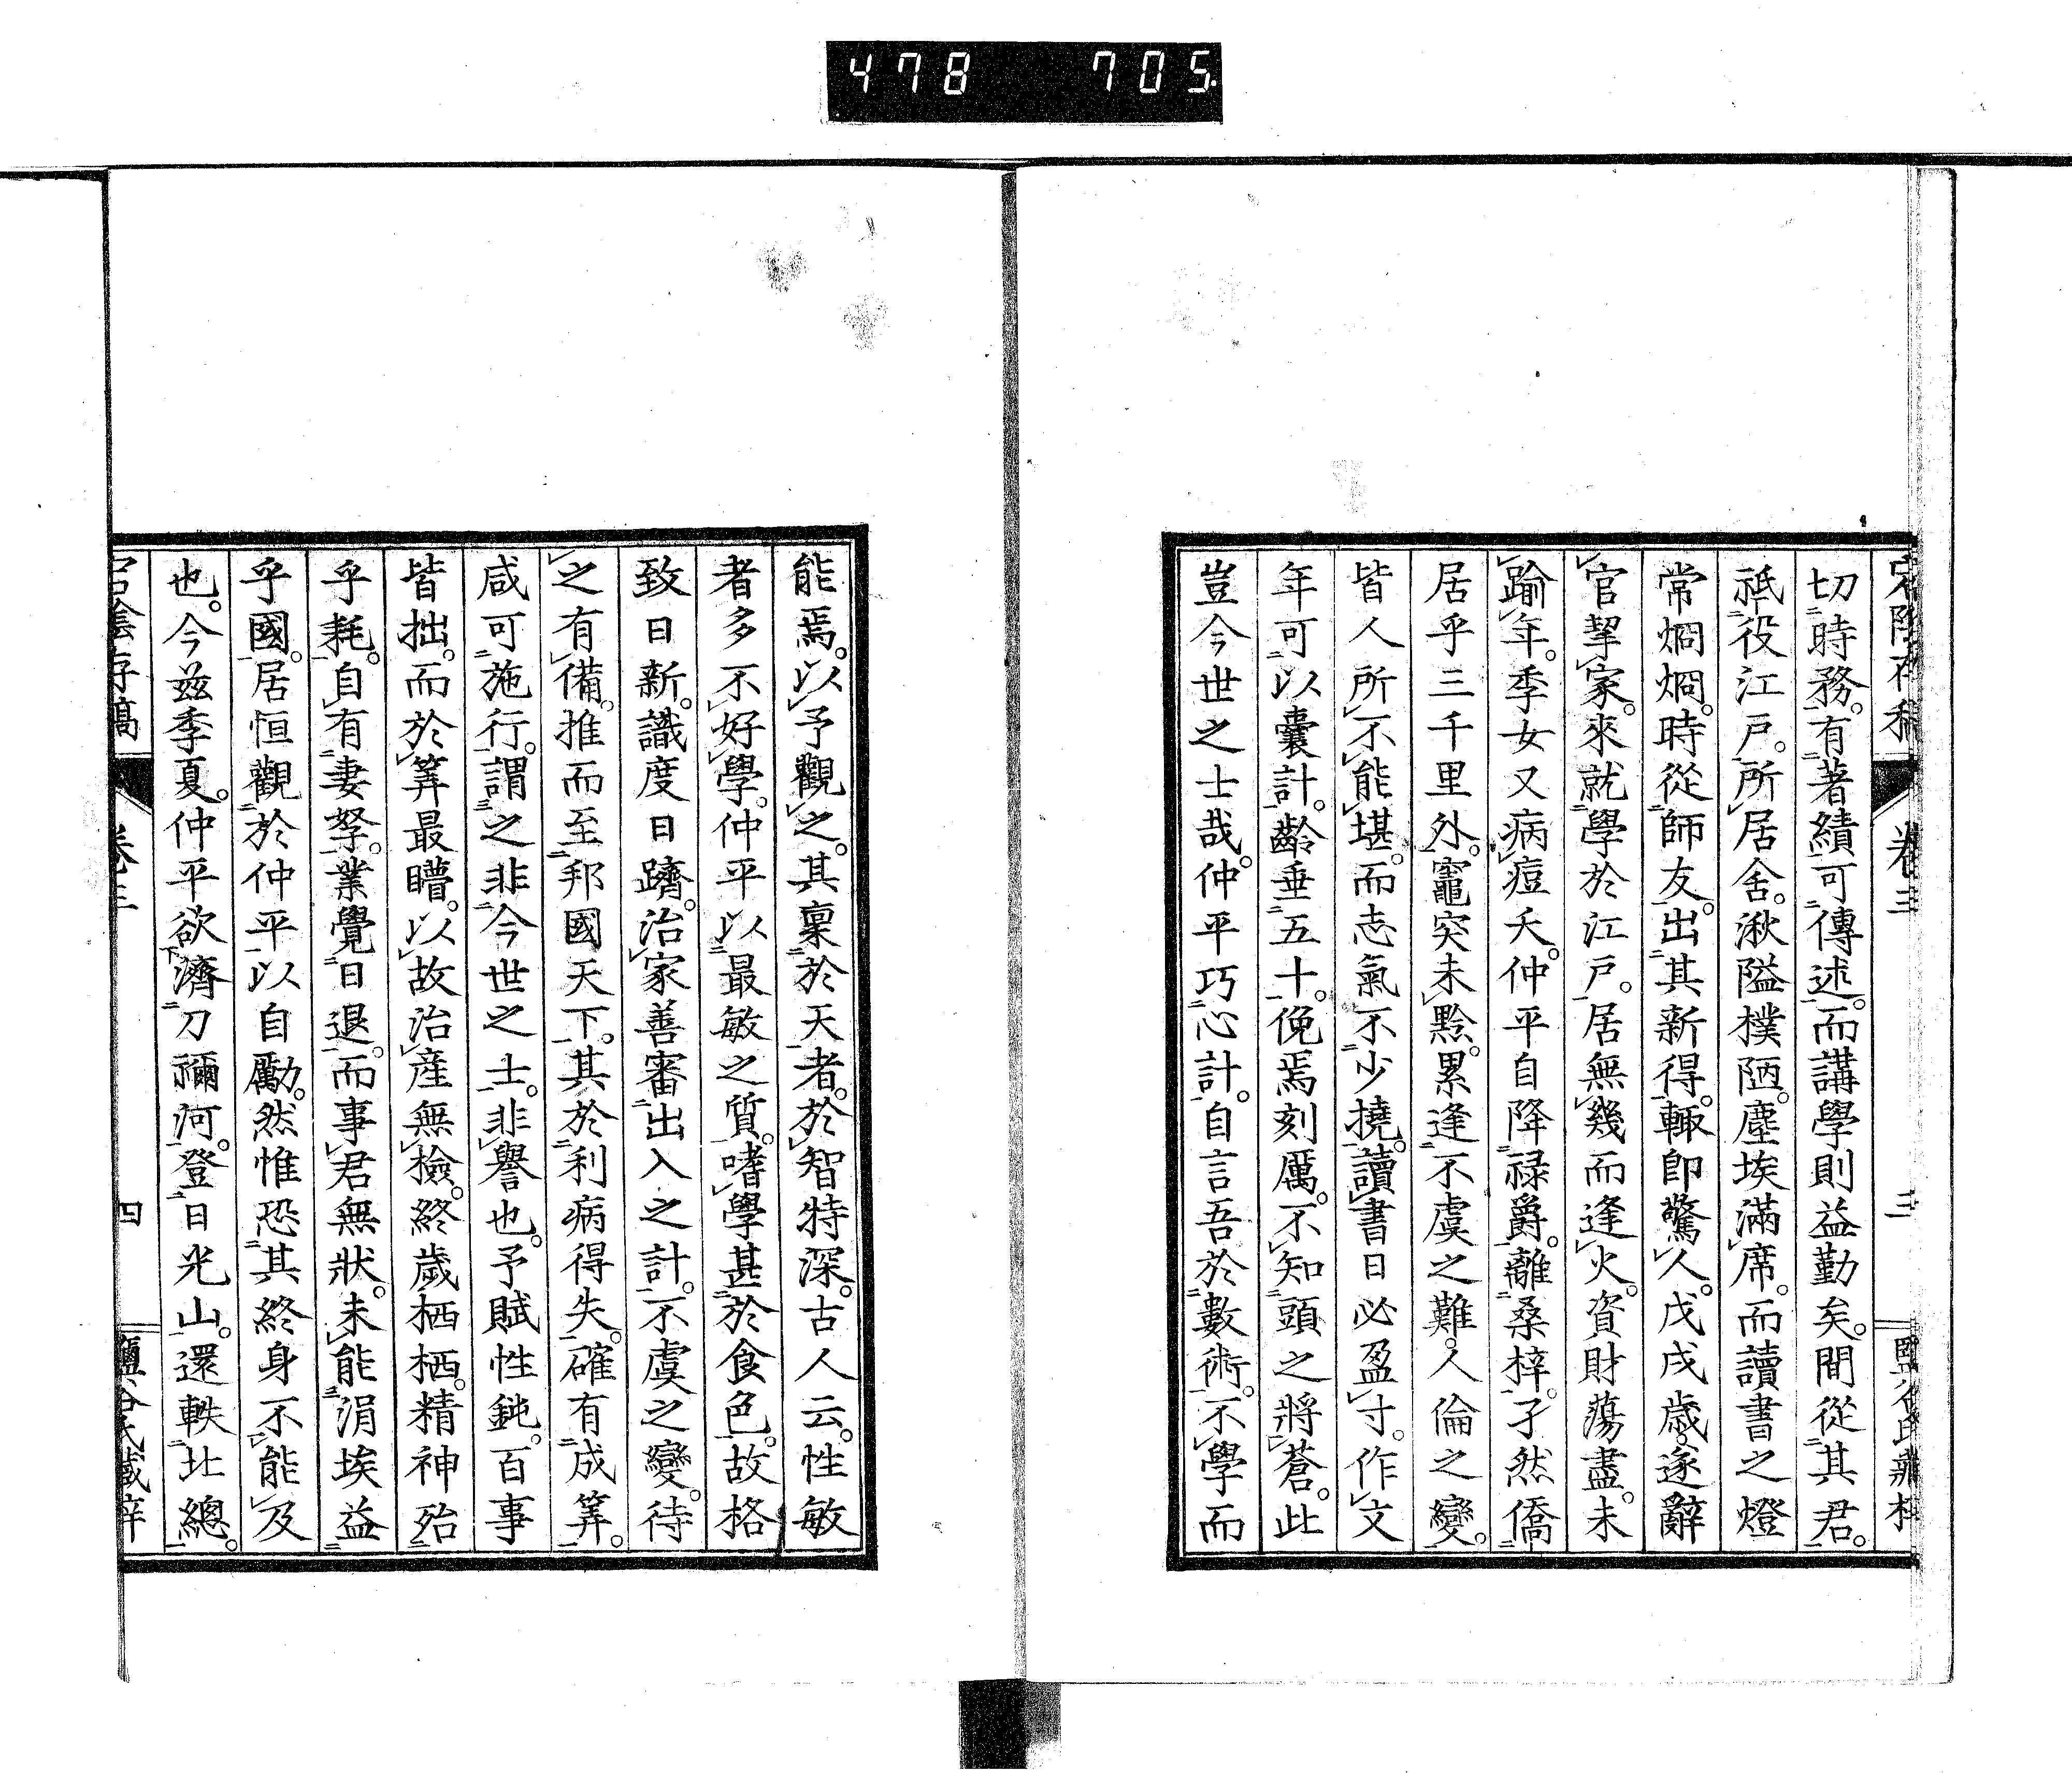 478 705
卷三 三
切時務。有著績可傳述。而講學則益勤矣。間從其君。
祇役江戶。所居舍。湫隘樸陋。塵埃滿席。而讀書之燈
常烱烱。時從師友。出其新得。輙卽驚人。戊戌歲。遂辭
官挈家。來就學於江戶。居無幾而逢火。資財蕩盡。未
踰年。季女又病痘夭。仲平自降祿爵。離桑梓。孑然僑
居乎三千里外。竈突未黔。累逢不虞之難。人倫之變。
皆人所不能堪。而志氣不少撓。讀書日必盈寸。作文
年可以囊計。齡垂五十。俛焉刻厲。不知頭之將蒼。此
豈今世之士哉。仲平巧心計。自言吾於數術。不學而
能焉。以予觀之。其稟於天者。於智特深。古人云。性敏
者多不好學。仲平以最敏之質。嗜學甚於食色。故格
致日新。識度日躋。治家善審出入之計。不虞之變。待
之有備。推而至邦國天下。其於利病得失。確有成筭。
咸可施行。謂之非今世之士。非譽也。予賦性鈍。百事
皆拙。而於筭最矒。以故治產無檢。終歲栖栖。精神殆
乎耗。自有妻孥。業覺日退。而事君無狀。未能涓埃益
乎國。居恒觀於仲平。以自勵。然惟恐其終身不能及
也。今茲季夏。仲平欲濟刀禰河。登日光山。還軼北總。
宕陰存稿 卷三 四